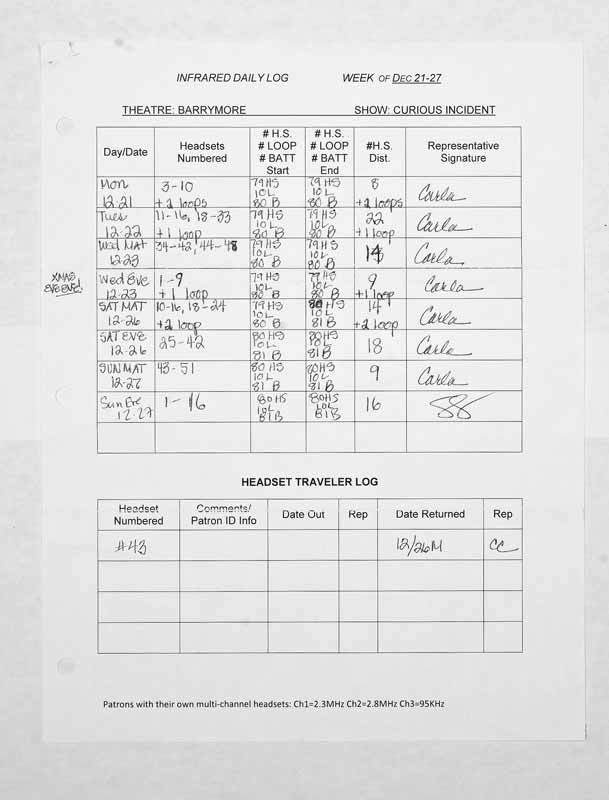 INFRARED DAILY LOG WEEK OF DEC 21-27
THEATRE: BARRYMORE SHOW: CURIOUS INCIDENT
Day/Date
Headsets
Numbered
# H.S.
# LOOP
# BATT
Start
# H.S.
# LOOP
# BATT
End
#H.S.
Dist.
Representative
Signature
Mon
12.21
3-10
+2 loops
79 HS
10L
80 B
79 HS
10L
80 B
8
+2 loops
Carla
Tues
12.22
11-16, 18-33
+1 loop
79 HS
10L
80 B
79 HS
10L
80 B
22
+1 loop
Carla
Wed MAT
12.23
34-42, 44-48
79 HS
10L
80 B
79 HS
10L
80 B
14
Carla
XMAS
EVE EVE!
Wed Eve
12.23
1-9
+1 loop
79 HS
10L
80 B
79 HS
10L
80 B
9
+1 loop
Carla
SAT MAT
12.26
10-16, 18-24
+2 loop
79 HS
10L
80 B
80 HS
10L
81 B
14
+2 loop
Carla
SAT EVE
12.26
25-42
80 HS
10L
81 B
80 HS
10L
81 B
18
Carla
SUN MAT
12.27
43-51
80 HS
10L
81 B
80 HS
10L
81 B
9
Carla
Sun Eve
12.27
1-16
80HS
10L
81B
80HS
10L
81B
16
HEADSET TRAVELER LOG
Headset
Numbered
Comments/
Patron ID Info
Date Out
Rep
Date Returned
Rep
#43
12/26M
CC
Patrons with their own multi-channel headsets: Ch1=2.3MHz Ch2=2.8MHz Ch3=95KHz